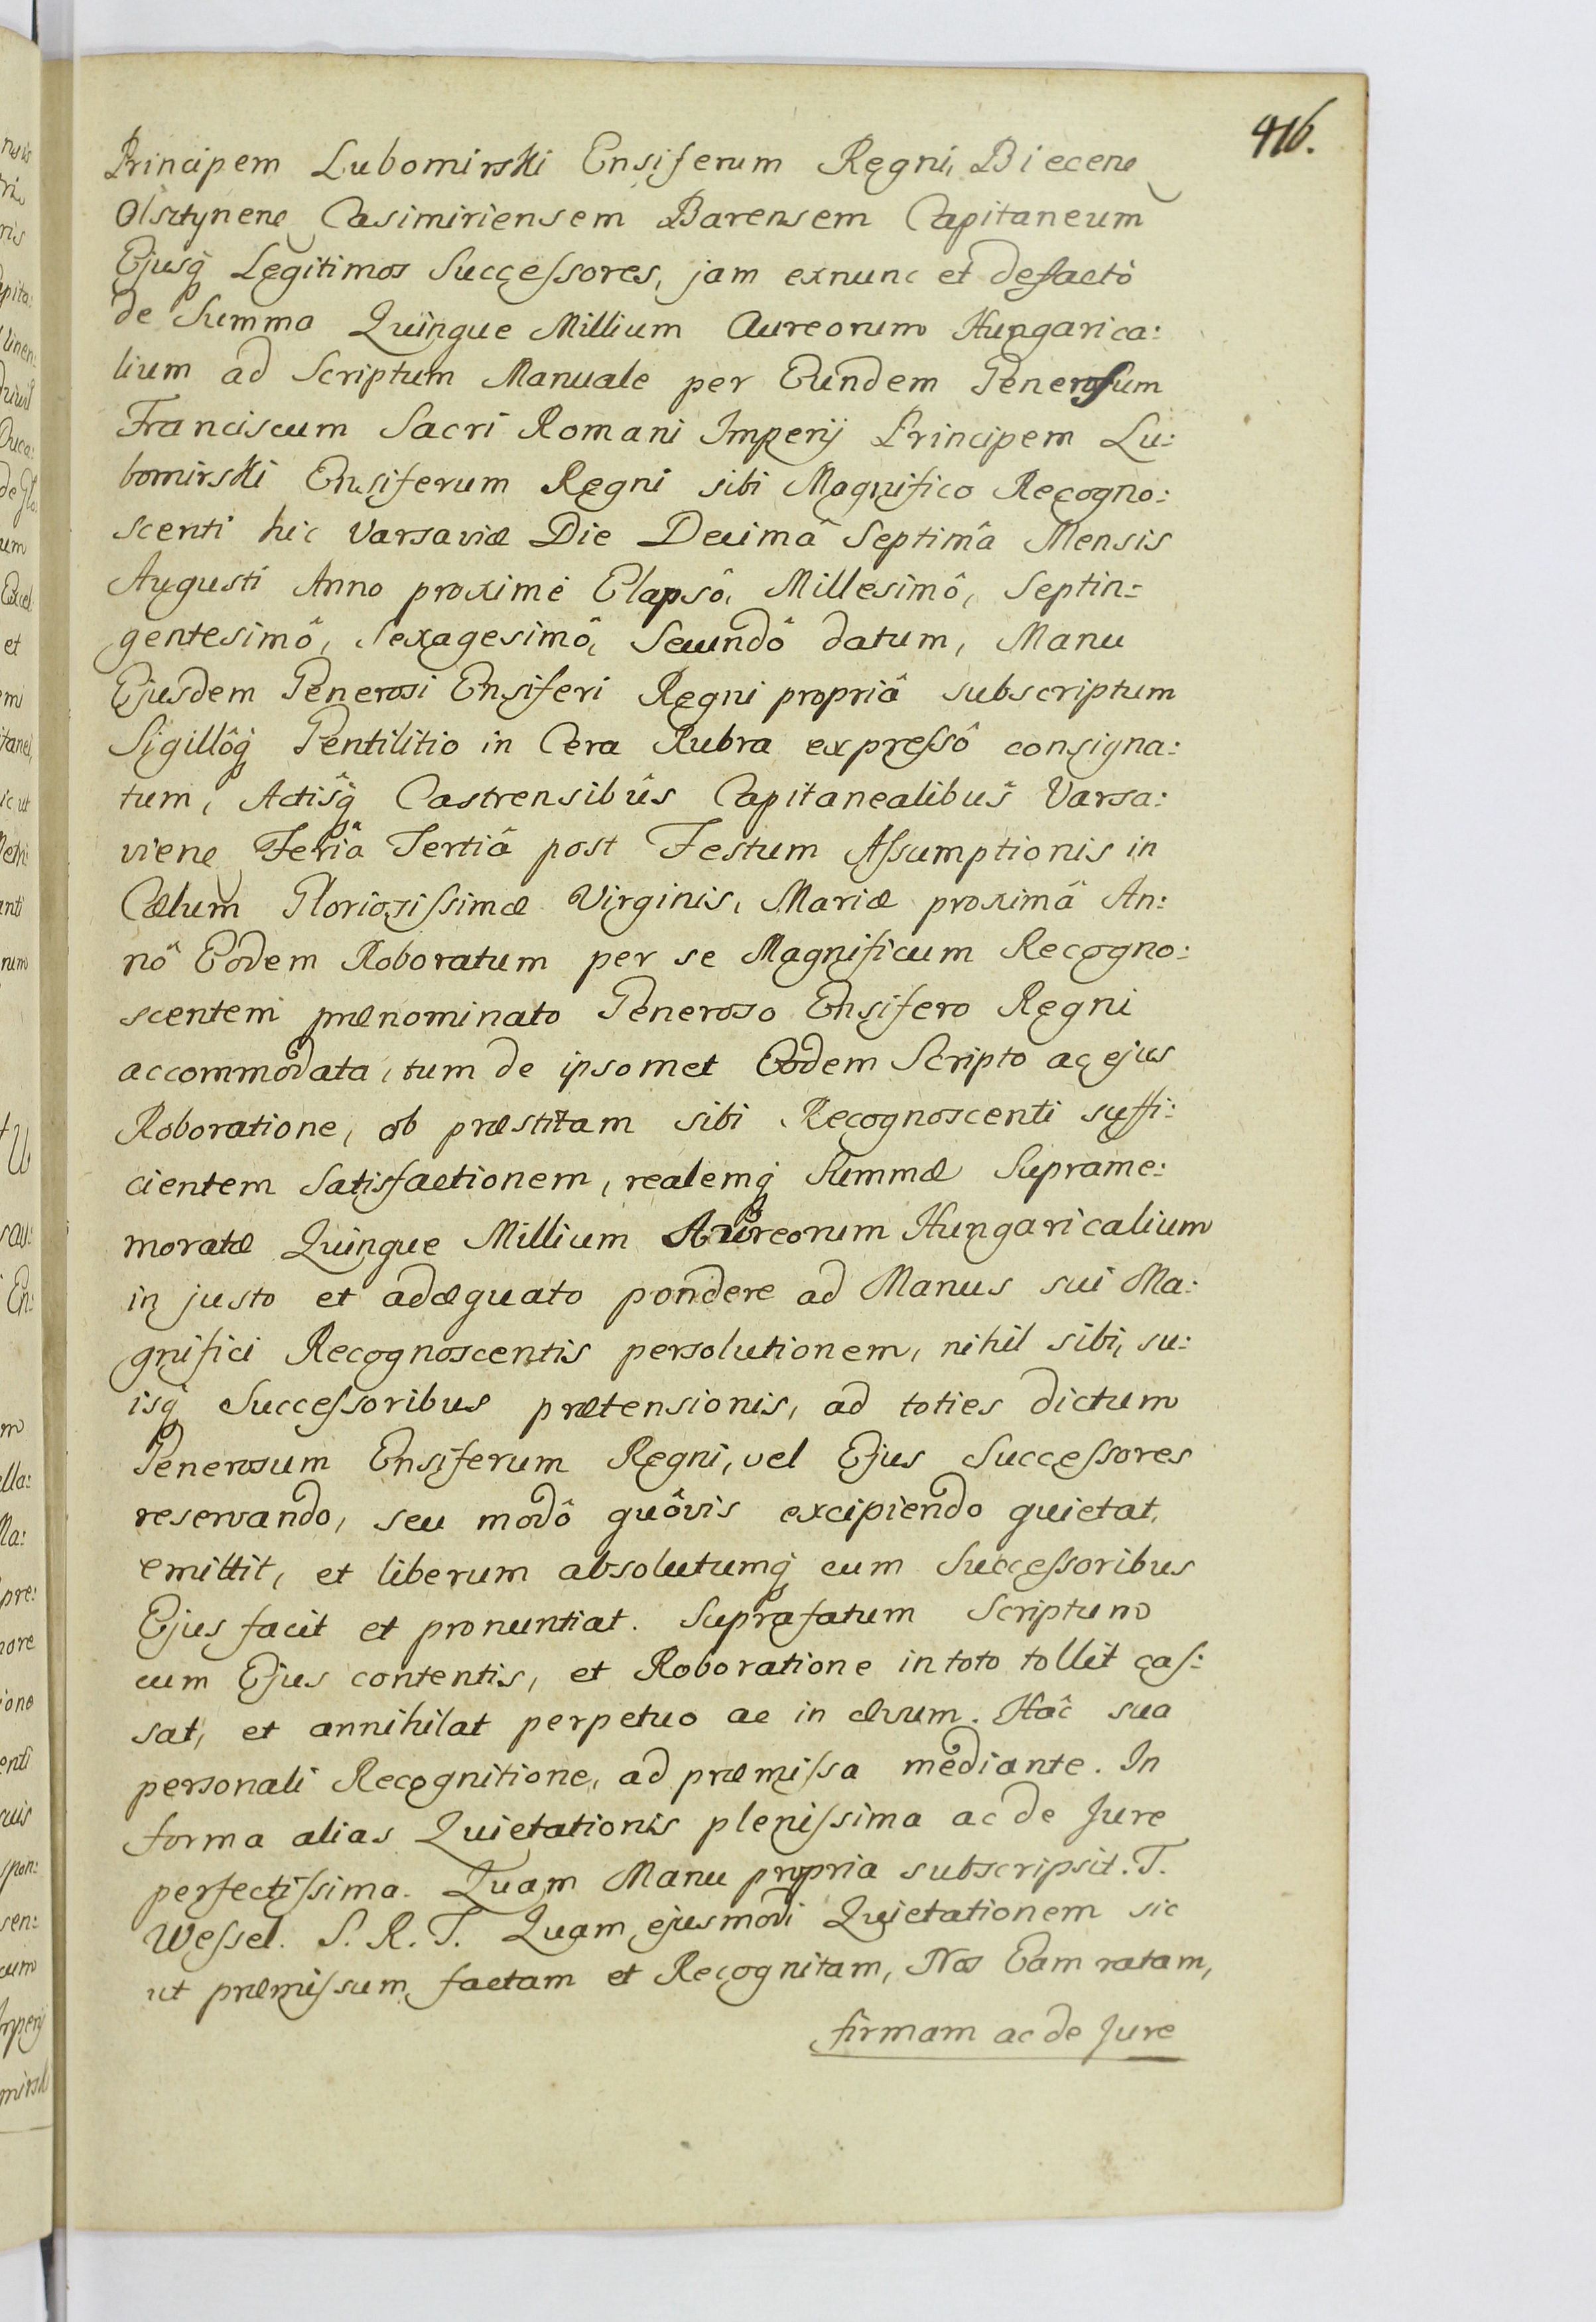 416.
Principem Lubomirski Ensiferum Regni, Biecenẽ
Olsztynenẽ Casimiriensem Barensem Capitaneum
Ejusq́ Legitimos Succeſsores, jam exnunc et defactò
de Summa Quinque Millium Aureorum Hungarica:
lium ad Scriptum Manuale per Eundem Generosum
Franciscum Sacri Romani Imperij Principem Lu:
bomirski Ensiferum Regni sibi Magnifico Recogno:
scenti hic Varsaviæ Die Decimâ Septimâ Mensis
Augusti Anno proximè Elapsô, Millesimô, Septin=
gentesimô, Sexagesimô, Secundô datum, Manu
Ejusdem Generosi Ensiferi Regni propriâ subscriptum
Sigillôq́ Gentilitio in Cera Rubra expreſsô consigna:
tum, Actisq́ Castrensibûs Capitanealibus Varsa:
vienẽ Feriâ Tertiâ post Festum Aſsumptionis in
Cælum Gloriosiſsimæ Virginis, Mariæ proximâ An:
nô Eodem Roboratum per se Magnificum Recogno:
scentem prænominato Generoso Ensifero Regni
accommodata, tum de ipsomet Eodem Scripto ac ejus
Roboratione, ob præstitam sibi Recognoscenti suffi:
cientem Satisfactionem, realemq́ Summæ Suprame:
moratæ Quinque Millium Aureorum Hungaricalium
in justo et adæquato pondere ad Manus sui Ma:
gnifici Recognoscentis persolutionem, nihil sibi, su:
isq́ Succeſsoribus prætensionis, ad toties dictum
Generosum Ensiferum Regni, vel Ejus Succeſsores
reservando, seu modô quôvis excipiendo quietat,
emittit, et liberum absolutumq́ cum Succeſsoribus
Ejus facit et pronuntiat. Suprafatum Scriptum
cum Ejus contentis, et Roboratione in toto tollit caſ:
sat, et annihilat perpetuo ac in ævum. Hâc sua
personali Recognitione, ad præmiſsa mediante. In
forma alias Quietationis pleniſsima ac de Jure
perfectiſsima. Quam Manu propria subscripsit. T.
Weſsel. S. R. T. Quam ejusmodi Quietationem sic
ut præmiſsum factam et Recognitam, Nos Eam ratam,
firmam ac de Jure